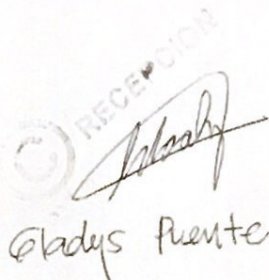 RECEPCION
Gladys Puente